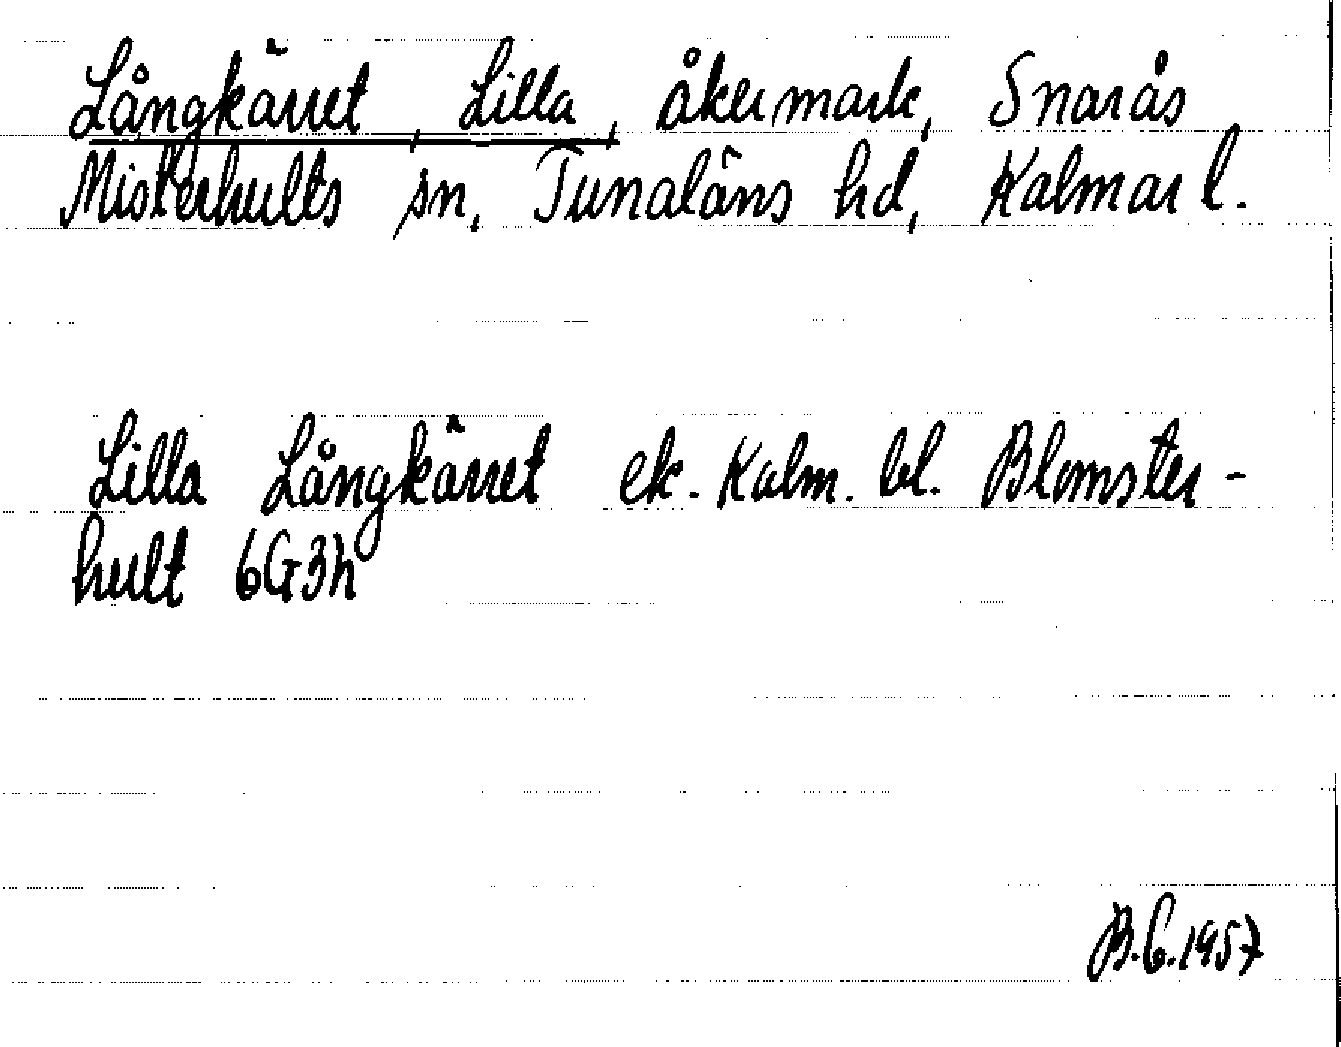 Långkärret, Lilla, åkermark, Snarås
Misterhults sn, Tunaläns hd, Kalmar l.
Lilla Långkärret ek. Kalm. bl. Blomster-
hult 6G3h
B.C. 1957